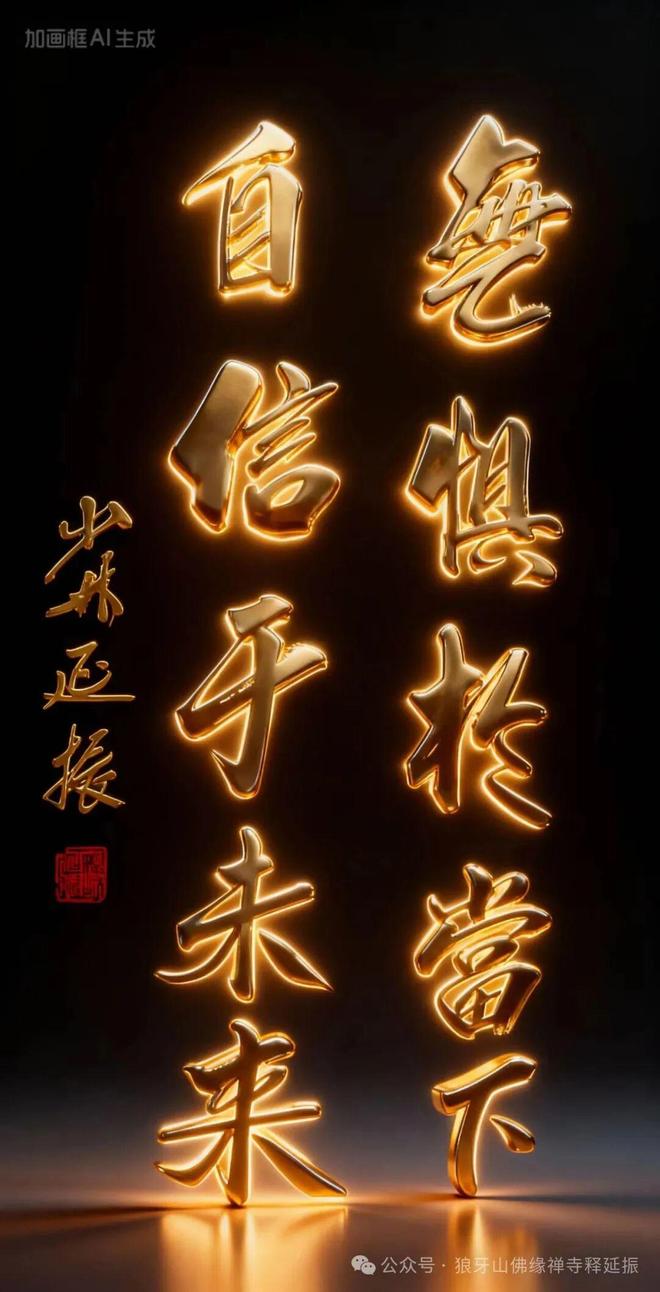 加画框AI生成
無惧於當下
自信于未来
少林延振
公众号·狼牙山佛缘禅寺释延振